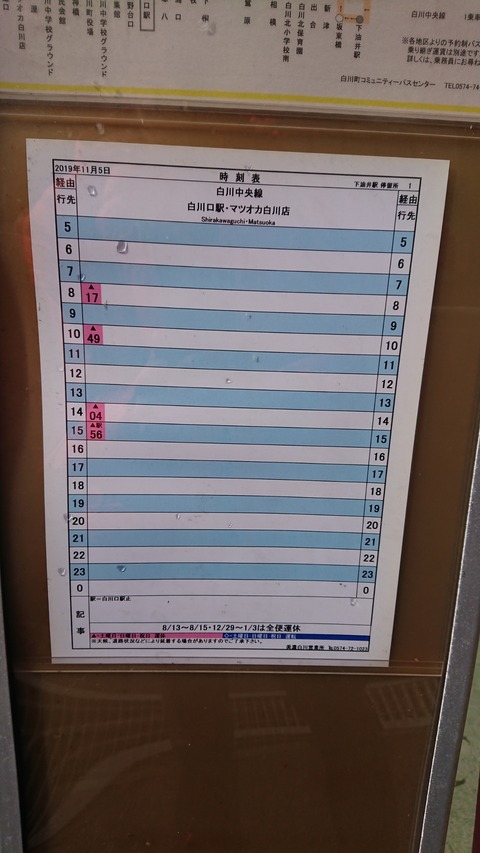 白川中央線
1乗車
※各地区よりの予約制バス
乗り継ぎ運賃は別途です
詳しくは、乗務員にお尋ね
白川町コミュニティーバスセンター TEL0574-74
下油井駅
坂東橋
新津
出合
白川北保育園
白川北小学校南
相橋
口駅
野台口
中学校グラウンド
川町役場
オカ白川店
2019年11月5日
時刻表
下油井駅 停留所 1
経由
行先
白川中央線
白川口駅・マツオカ白川店
Shirakawaguchi・Matsuoka
経由
行先
5 5
6 6
7 7
8 ▲17 8
9 9
10 ▲49 10
11 11
12 12
13 13
14 ▲04 14
15 ▲駅56 15
16 16
17 17
18 18
19 19
20 20
21 21
22 22
23 23
0 0
記事
駅=白川口駅止
8/13～8/15・12/29～1/3は全便運休
▲=土曜日・日曜日・祝日 運休
◇=土曜日・日曜日・祝日 運転
※天候、道路状況などにより延着する場合がありますのでご了承下さい。
美濃白川営業所 ℡0574-72-1023